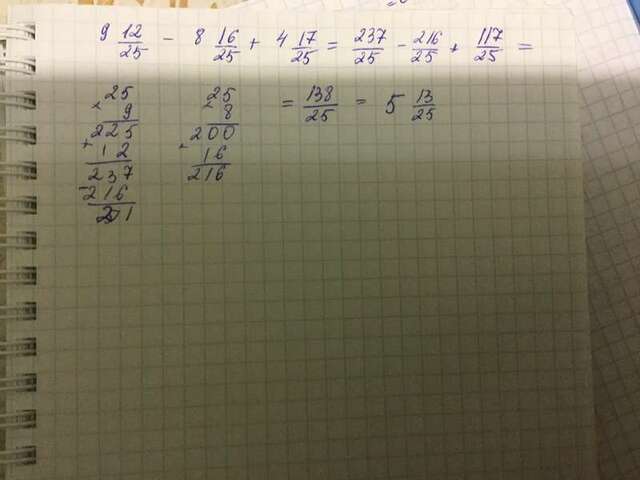 9 12/25 - 8 16/25 + 4 17/25 = 237/25 - 216/25 + 117/25 =
= 138/25 = 5 13/25
25
× 9
225
+ 12
237
- 216
25
× 8
200
+ 16
216